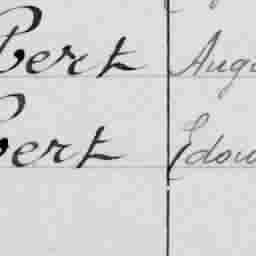 bert Augu
bert Edou